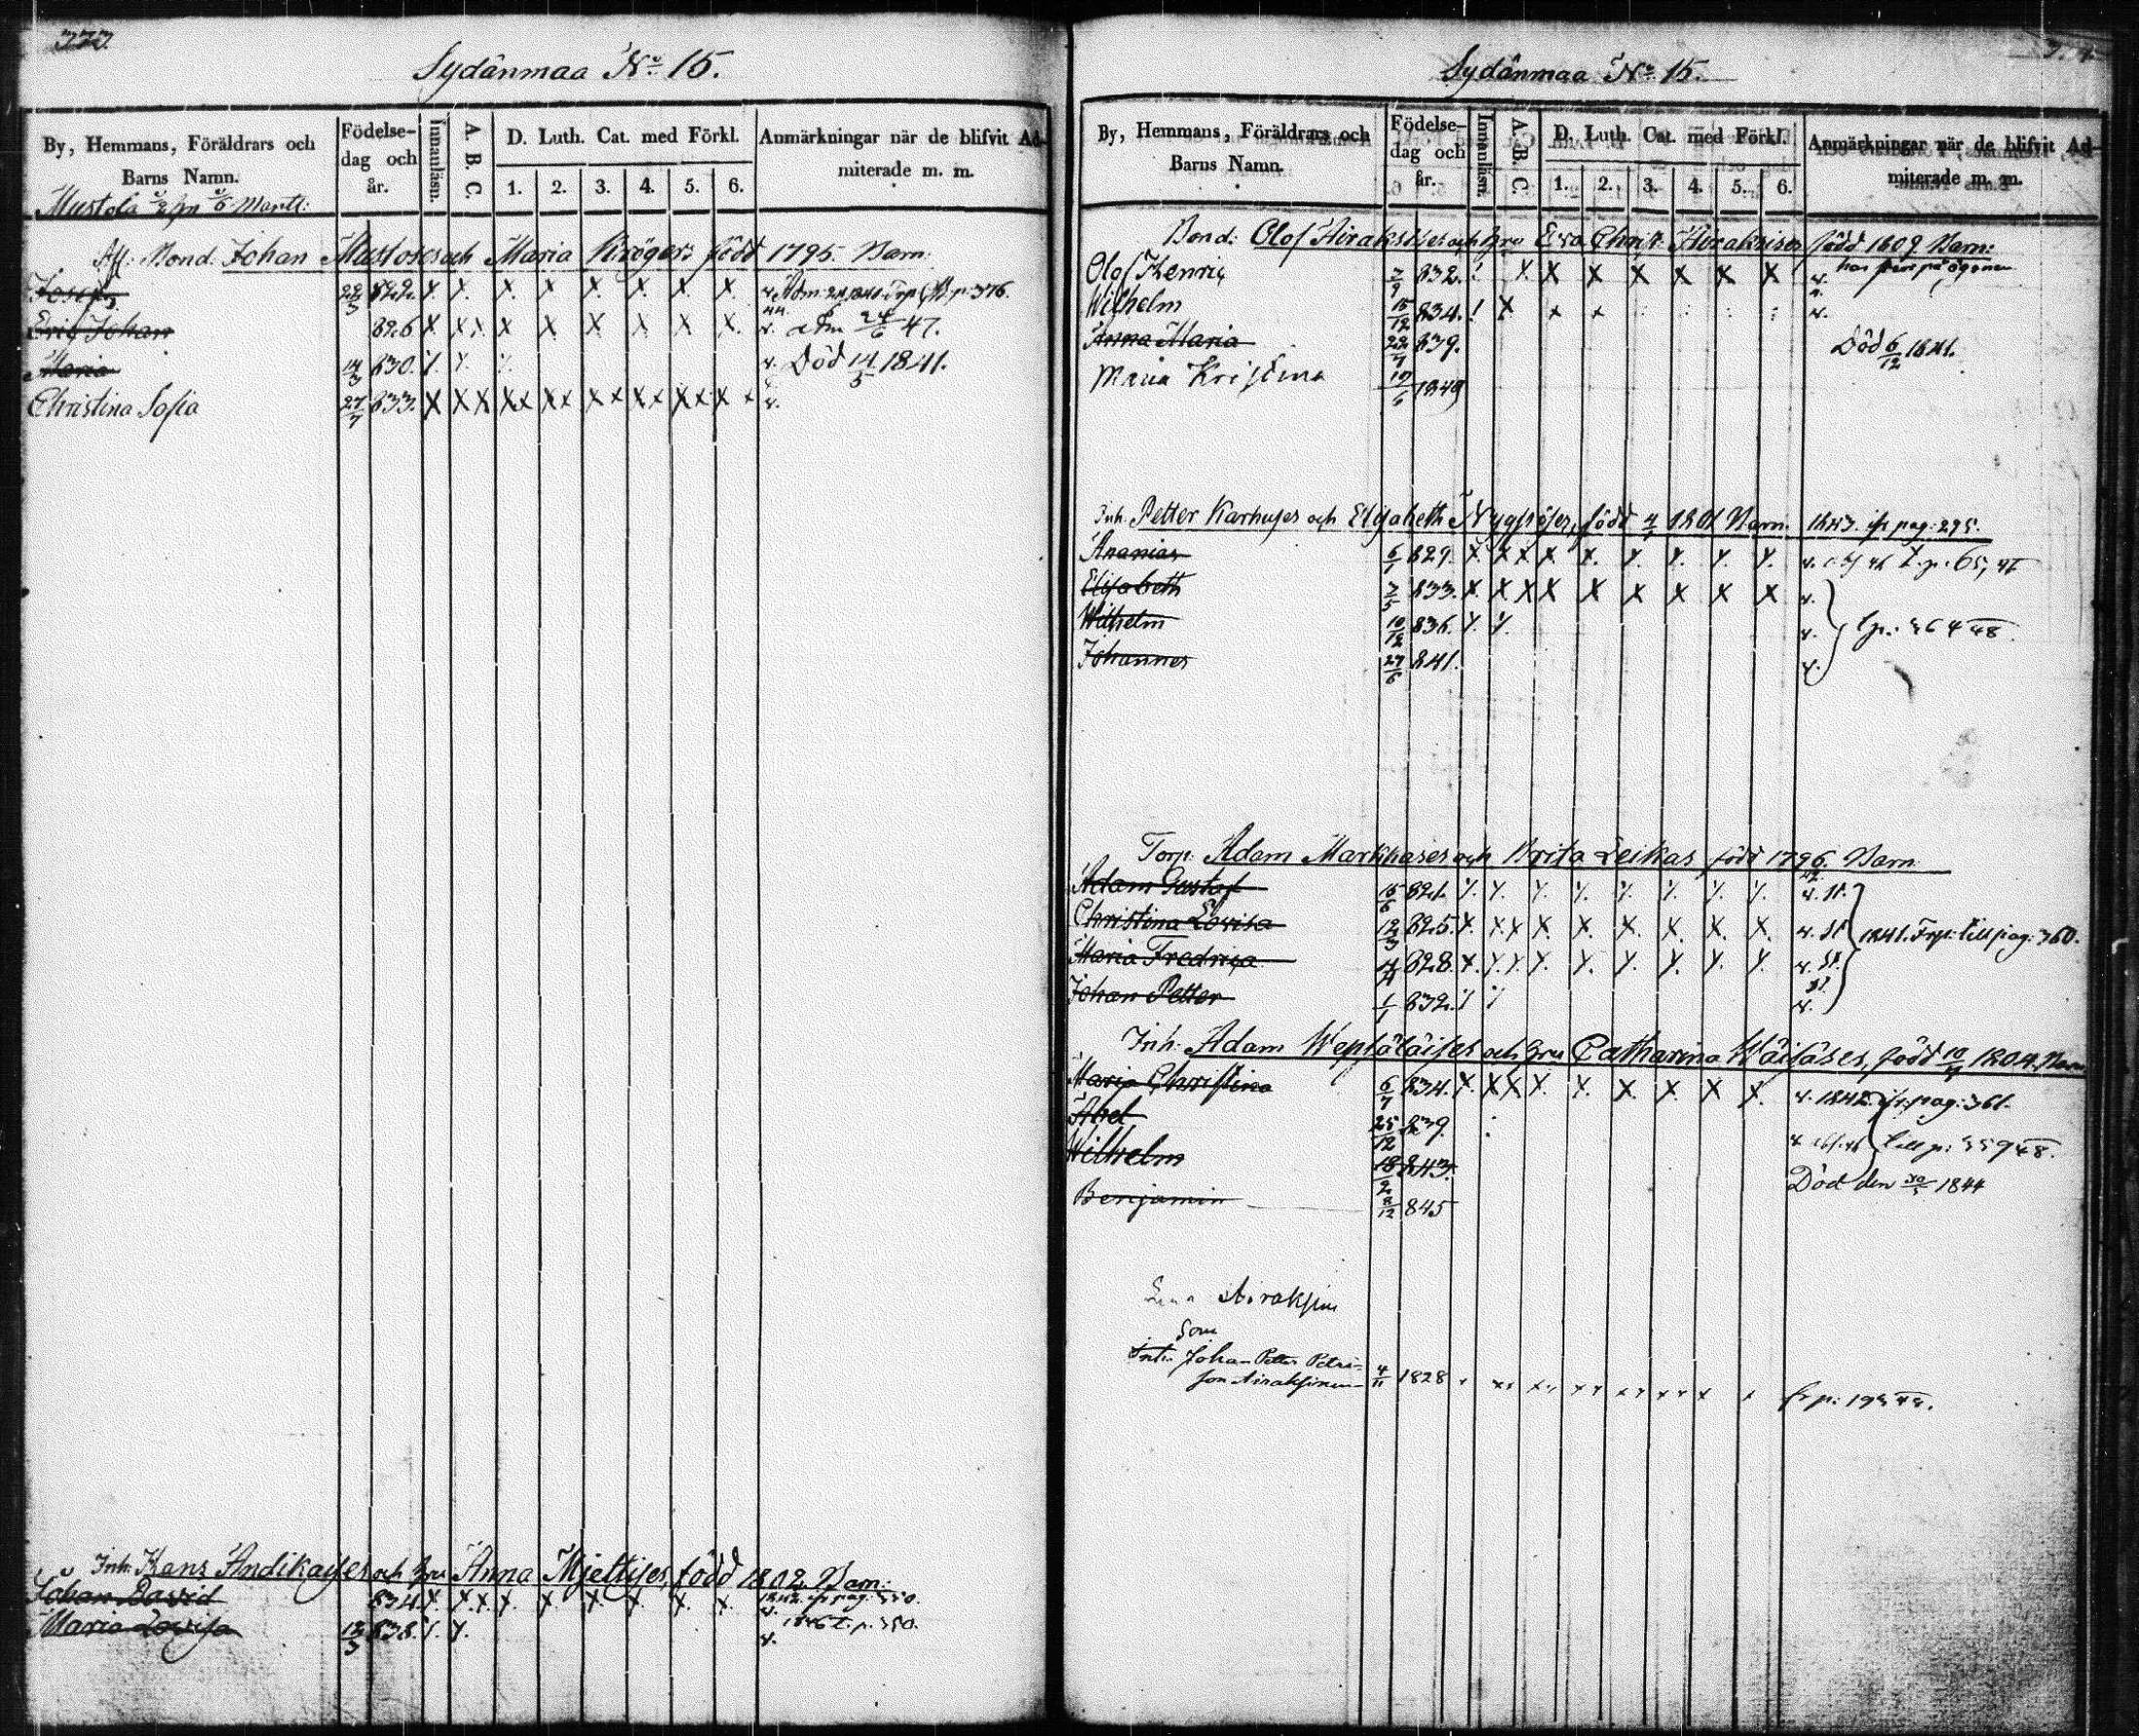 373
Sydänmaa No 15.
By, Hemmans, Föräldrars och Barns Namn.
Födelse-dag och år.
Innanläsn.
A. B. C.
D. Luth. Cat. med Förkl.
1. 2. 3. 4. 5. 6.
Anmärkningar när de blifvit Admiterade m. m.
Mustola
Afl. Bond. Johan Mustoses och Maria Krögers född 1795. Barn:
Joseph 22/3 822. x. x. x. x. x. x. x. x. p: 376.
Eric Johan 826 x x x x x x x x x. 24/6 47.
Maria 14/3 830. Död 14/5 1841.
Christina Sofia 27/7 833. x x x x x x x x x x x x x x x
Inh. Hans Andikaises och hru Anna Mjettises, född 1802. Barn:
Johan David 834. x. x. x. x. x. x. x. x. x. 1842. pag: 350.
Maria Lovisa 13/3 838. 1846 t. p. 350.
Sydänmaa No 15.
By, Hemmans, Föräldrars och Barns Namn.
Födelse-dag och år.
Innanläsn.
A. B. C.
D. Luth. Cat. med Förkl.
1. 2. 3. 4. 5. 6.
Anmärkningar när de blifvit Admiterade m. m.
Bond: Olof Airaksises och hru Eva Christ. Airaksises född 1809 Barn:
Olof Henric 7/9 832. ! x x x x x x x har på ögonen
Wilhelm 15/12 834. ! x x x
Anna Maria 22/7 839. Död 6/12 1841.
Maria Kristina 1849
Inh. Petter Karhuses och Elisabeth Nygrises, född 4/1 1801 Barn. 1843. pag: 295.
Ananias 6/1 829. x. x x x. x. x. x. x. x. 65, 47
Elisabeth 7/5 833. x. x x x x x x x x
Wilhelm 10/12 836. 364 48.
Johannes 27/6 841.
Torp: Adam Markkases och Brita Leikas född 1796. Barn:
Adam Gustaf 15/6 821.
Christina Lovisa 12/3 825. x. x. x x. x. x. x. x. x. 1841. till pag: 360.
Maria Fredrica 828. x. x. x. x. x. x. x. x. x.
Johan Petter 1/1 832.
Inh. Adam Wepsäläises och hru Catharina Wäisäses, född 1804. Barn
Maria Christina 6/7 834. x. x x x. x. x. x. x x. 1842. pag: 361.
Abel 25/12 839. till p: 359 48.
Wilhelm 18/2 843. Död den 1844
Benjamin 8/12 845
Airaksin
Son
Johan Petter Petri-
son Airaksinen 4/11 1828